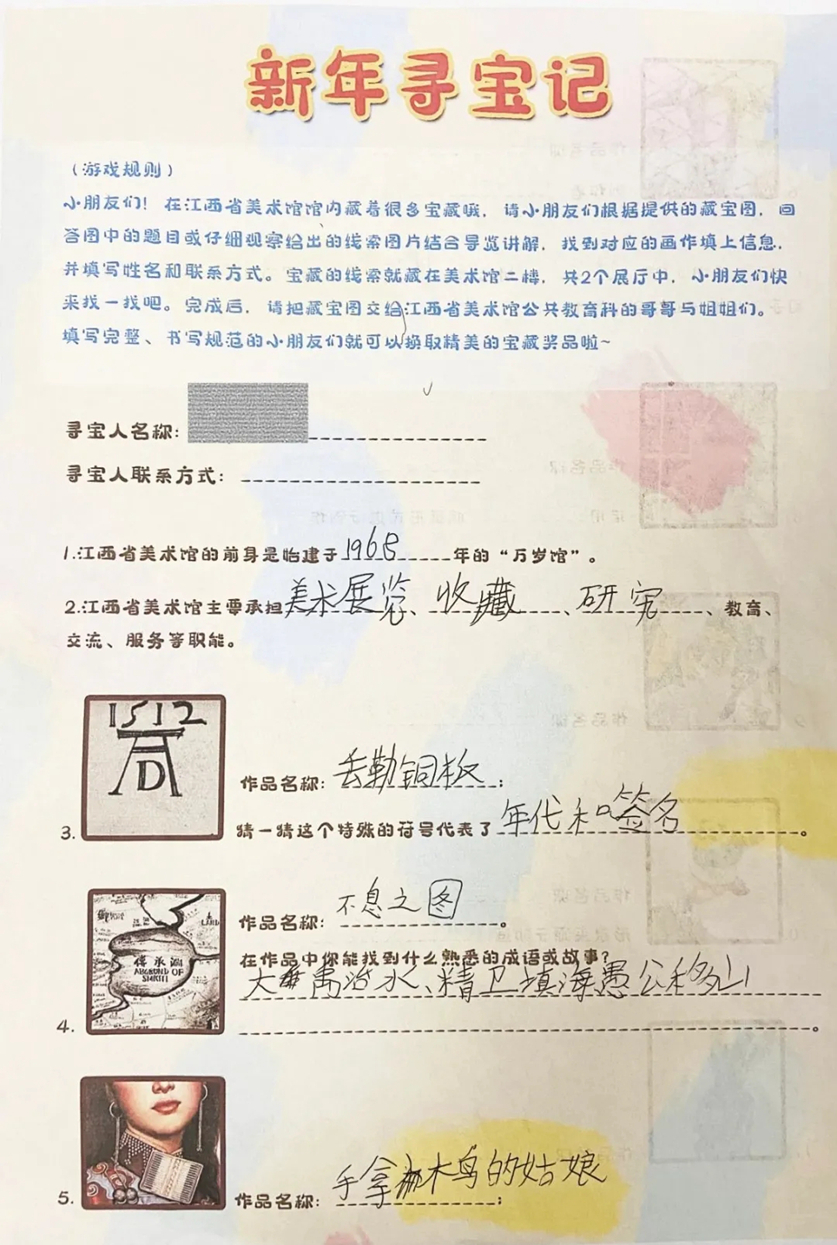 新年寻宝记
（游戏规则）
小朋友们！在江西省美术馆馆内藏着很多宝藏哦，请小朋友们根据提供的藏宝图，回
答图中的题目或仔细观察给出的线索图片结合导览讲解，找到对应的画作填上信息，
并填写姓名和联系方式。宝藏的线索就藏在美术馆二楼，共2个展厅中，小朋友们快
来找一找吧。完成后，请把藏宝图交给江西省美术馆公共教育科的哥哥与姐姐们。
填写完整、书写规范的小朋友们就可以换取精美的宝藏奖品啦~
寻宝人名称：
寻宝人联系方式：
1.江西省美术馆的前身是始建于1968年的“万岁馆”。
2.江西省美术馆主要承担美术展览、收藏、研究、教育、
交流、服务等职能。
1512
AD
作品名称：丢勒铜板；
3.猜一猜这个特殊的符号代表了年代和签名。
作品名称：不息之图。
在作品中你能找到什么熟悉的成语或故事？
大禹治水、精卫填海愚公移山
4.
5.作品名称：手拿木鸟的姑娘；